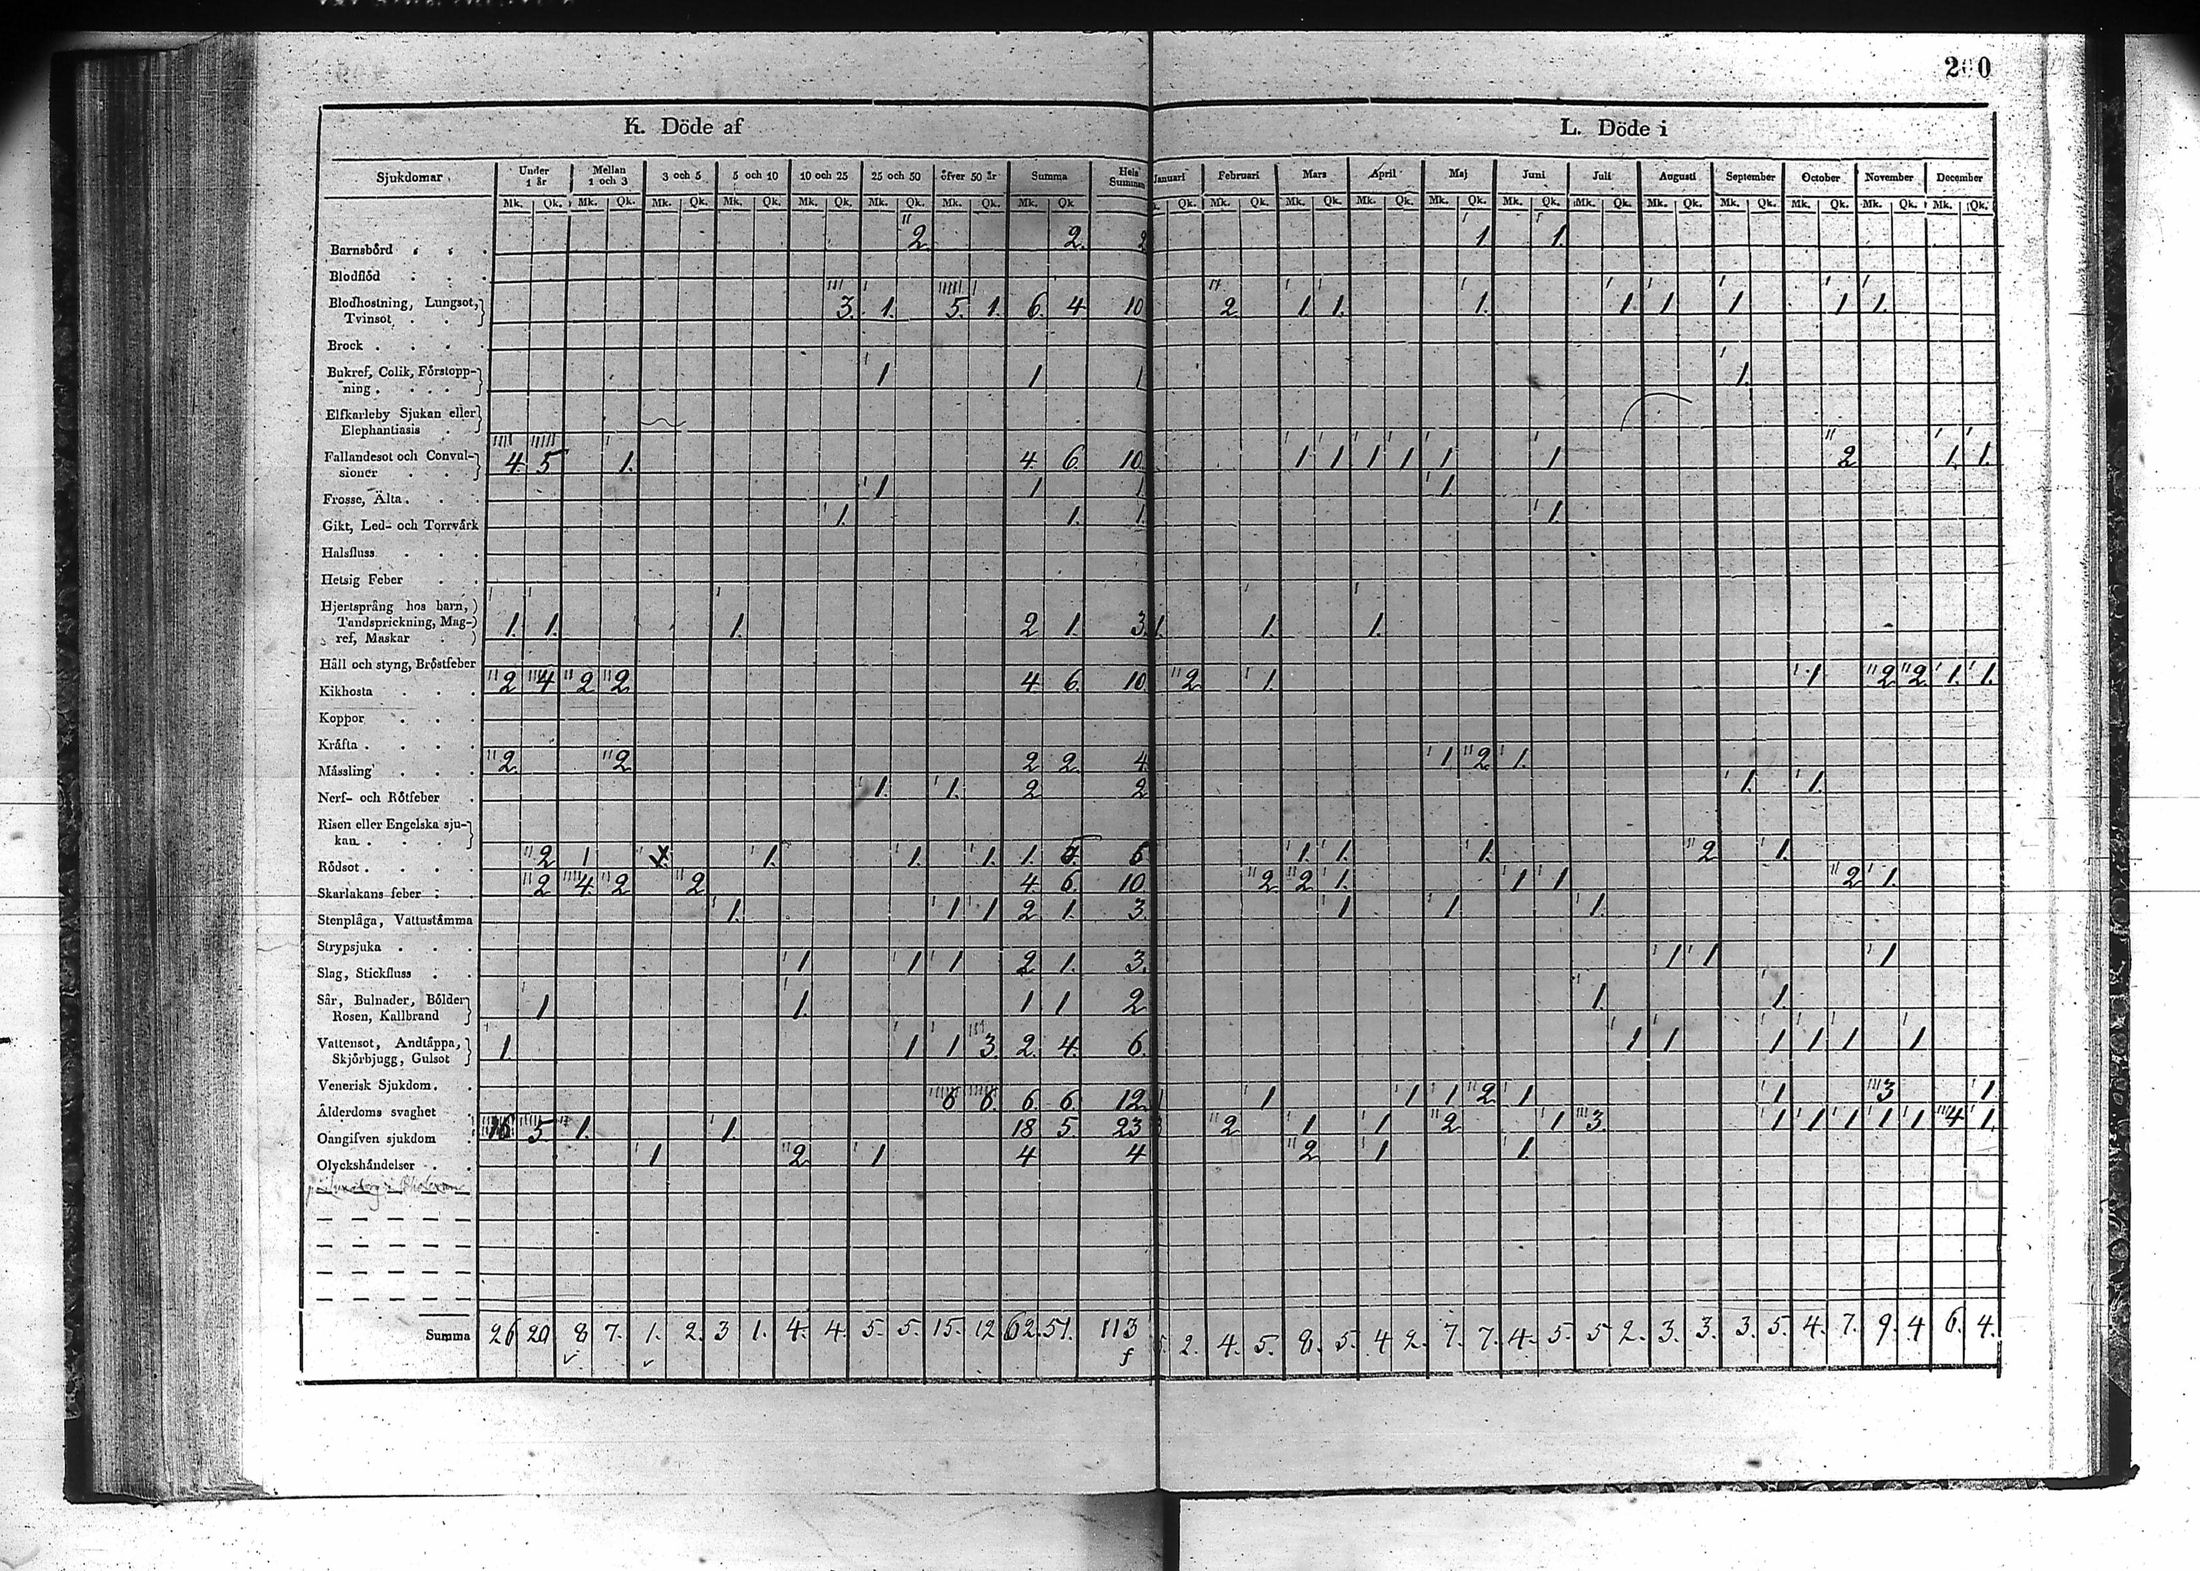 200
K. Döde af L. Döde i
Sjukdomar Under 1 år Mellan 1 och 3 3 och 5 5 och 10 10 och 25 25 och 50 öfver 50 år Summa Hela Summan Januari Februari Mars April Maj Juni Juli Augusti September October November December
Mk. Qk. Mk. Qk. Mk. Qk. Mk. Qk. Mk. Qk. Mk. Qk. Mk. Qk. Mk. Qk Qk. Mk. Qk. Mk. Qk. Mk. Qk. Mk. Qk. Mk. Qk. Mk. Qk. Mk. Qk. Mk. Qk. Mk. Qk. Mk. Qk. Mk. Qk.
Barnsbörd 2. 2. 2 1 1.
Blodflöd
Blodhostning, Lungsot,
Tvinsot 3. 1. 5. 1. 6. 4 10 2 1 1. 1. 1 1 1 1 1.
Brock
Bukref, Colik, Förstopp-
ning 1 1 1 1.
Elfkarleby Sjukan eller
Elephantiasis
Fallandesot och Convul-
sioner 4. 5 1. 4. 6. 10 1 1 1 1 1 1 2 1. 1.
Frosse, Älta 1 1 1. 1.
Gikt, Led- och Torrvärk 1. 1. 1. 1.
Halsfluss
Hetsig Feber
Hjertsprång hos barn,
Tandsprickning, Mag-
ref, Maskar 1. 1. 1. 2 1. 3. 1. 1. 1.
Håll och styng, Bröstfeber
Kikhosta 2 4 2 2 4 6. 10 2 1. 1 2 2 1. 1.
Koppor
Kräfta
Mässling 2 2 2 2. 4 1 2 1.
Nerf- och Rötfeber 1. 1. 2 2 1. 1.
Risen eller Engelska sju-
kan
Rödsot 2 1 1. 1. 1. 1. 1. 1. 1. 2 1.
Skarlakans feber 2 4. 2 2 4. 6. 10 2 2 1. 1 1 2 1.
Stenplåga, Vattustämma 1. 1 1 2 1. 3. 1 1 1.
Strypsjuka
Slag, Stickfluss 1 1 1 2 1. 3. 1 1 1
Sår, Bulnader, Bölder
Rosen, Kallbrand 1 1. 1 1 2 1. 1.
Vattensot, Andtäppa,
Skjörbjugg, Gulsot 1. 1 1 3. 2. 4. 6. 1 1 1 1 1 1
Venerisk Sjukdom
Ålderdoms svaghet 6 6. 6. 6. 12. 1 1 1 2 1 1 3 1
Oangifven sjukdom 16 5 1. 1. 18 5. 23 3 2 1 1 2 1 3. 1 1 1 1 1 4 1.
Olyckshändelser 1 2 1 4 4 2 1 1
Summa 26 20 8 7. 1. 2. 3 1. 4. 4. 5. 5. 15. 12 62. 51. 113 2. 4. 5. 8. 5. 4 2. 7. 7. 4. 5. 5 2. 3. 3. 3. 5. 4. 7. 9. 4 6. 4.